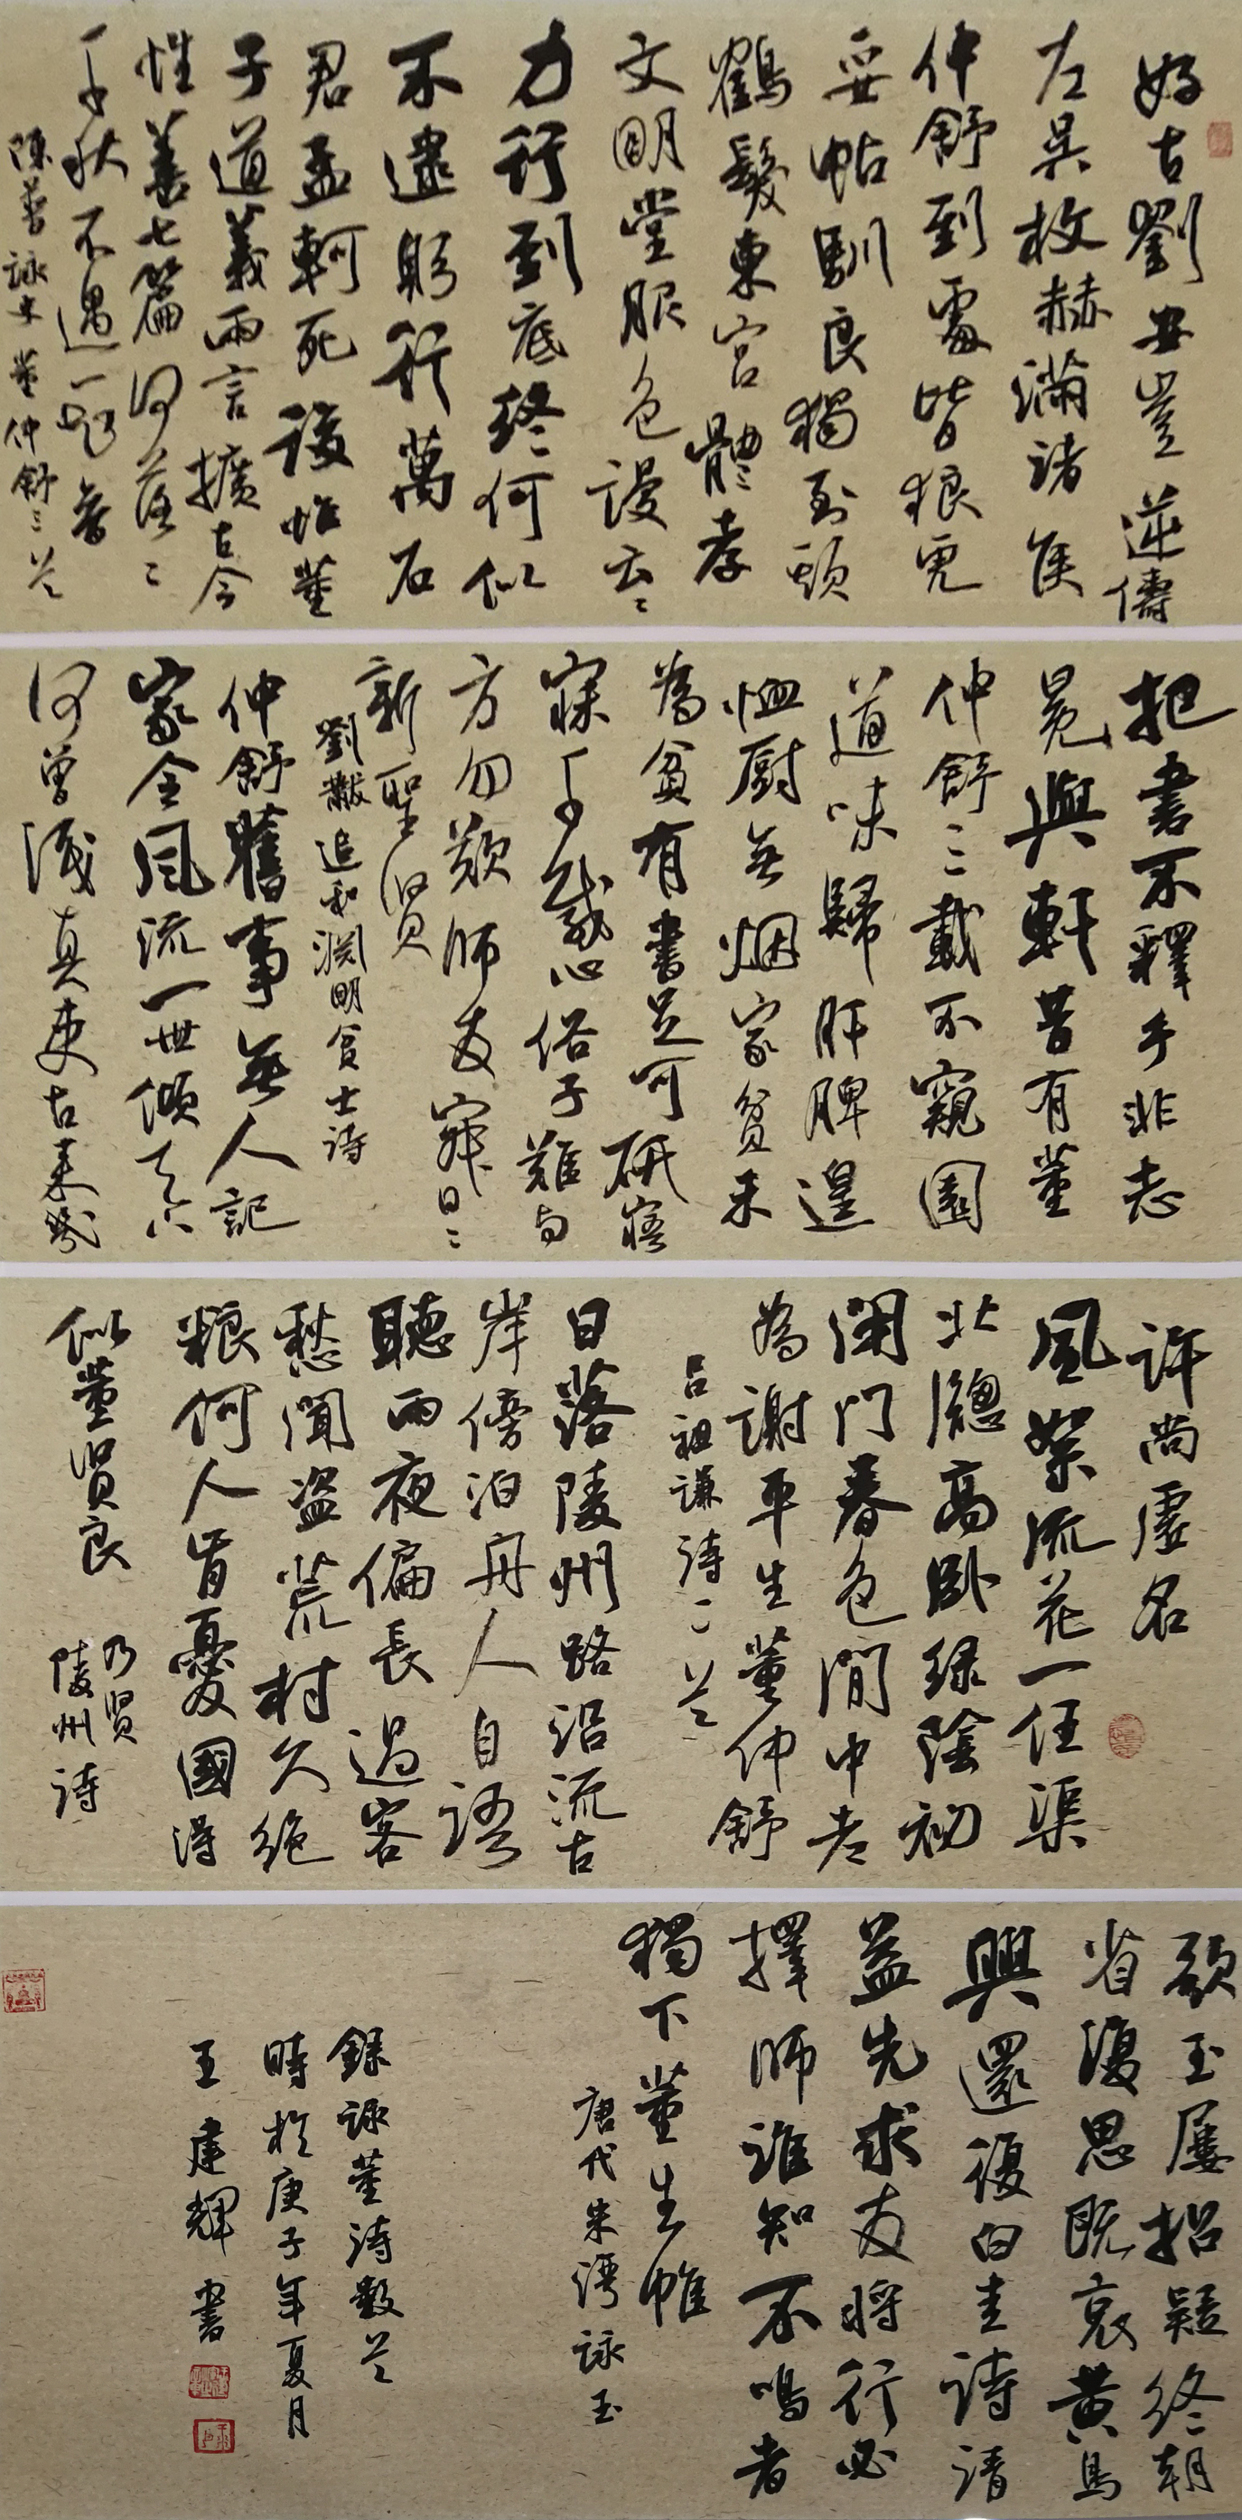 好古劉安豈逆儔
左吳枚赫滿諸侯
仲舒到處皆狼兕
妥帖馴良獨到頭
鶴髮東宮體孝
文明堂服色謾云云
力行到底終何似
不盡躬行萬石
君孟軻死後惟董
子道義兩言擴古今
性善七篇何落落
千秋不遇一知音
陳普詠史董仲舒三首
把書不釋手非志
冕與軒昔有董
仲舒三載不窺園
道味歸肝脾遑
恤廚無烟家貧未
為貧有書足可研寤
寐千載心俗子難與
方勿歎師友寂日日
新聖賢
劉黻追和淵明貧士詩
仲舒舊事無人記
家令風流一世傾天下
何曾識真吏古來幾
許尚虛名
風絮流花一任渠
北牕高臥綠陰初
閉門春色閒中老
為謝平生董仲舒
呂祖謙詩二首
日落陵州路沿流古
岸傍泊舟人自語
聽雨夜偏長過客
愁聞盜荒村久絕
粮何人肯憂國得
似董賢良
乃賢
陵州詩
獻玉屢招疑終朝
省復思既哀黃鳥
興還復白圭詩請
益先求友將行必
擇師誰知不鳴者
獨下董生帷
唐代朱灣詠玉
錄詠董詩數首
時於庚子年夏月
王建輝書